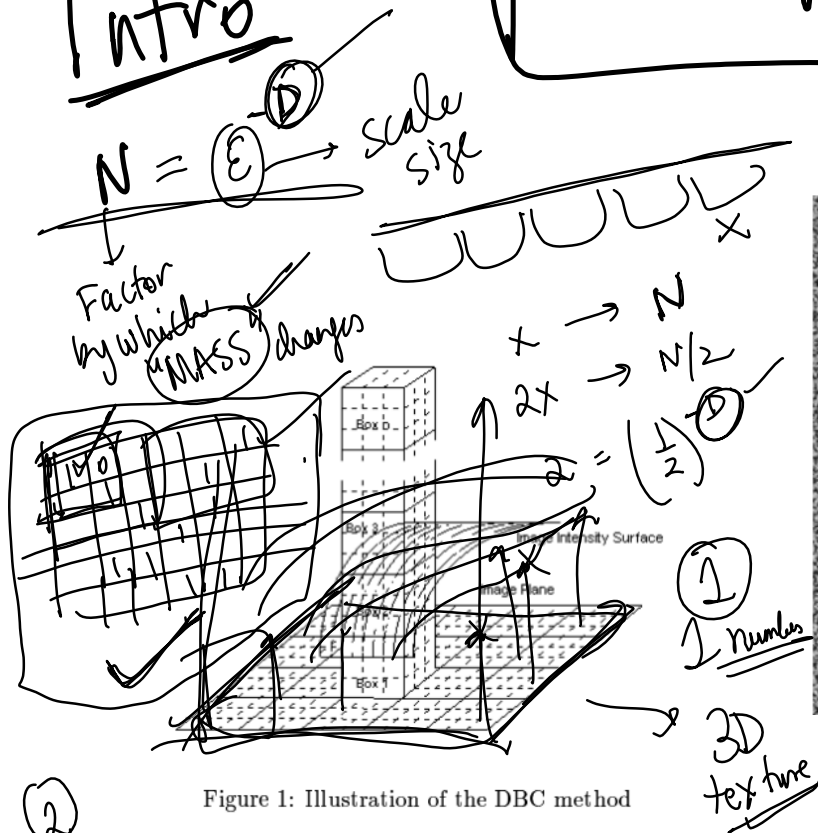 Intro
N = ε^-D → scale
size
Factor
by which
"MASS" changes
x
x → N
2x → N/2
2 = (1/2)^-D
1 0
Box n
Box 3
Image Intensity Surface
Image Plane
Box 1
1
1 number
3D
texture
2
Figure 1: Illustration of the DBC method